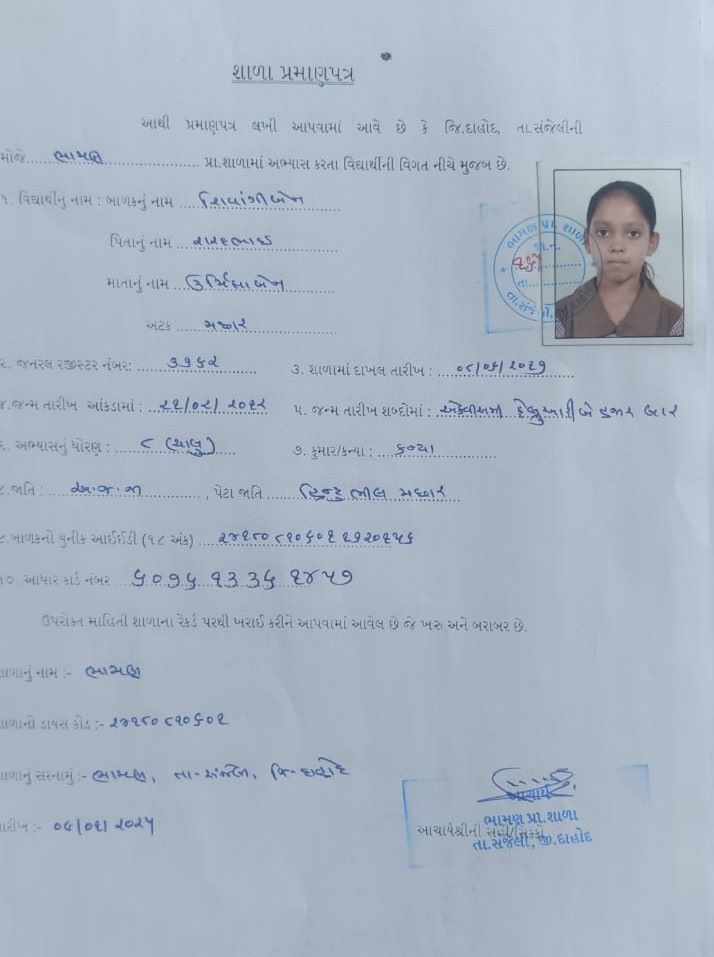 શાળા પ્રમાણપત્ર
આથી પ્રમાણપત્ર લખી આપવામાં આવે છે કે જિ.દાહોદ, તા.સંજેલીની
મોજે.... ભામણ .... પ્રા.શાળામાં અભ્યાસ કરતા વિદ્યાર્થીની વિગત નીચે મુજબ છે.
૧. વિદ્યાર્થીનું નામ : બાળકનું નામ ... શિવાંગીબેન
પિતાનું નામ
માતાનું નામ ... ઉર્મિલાબેન
અટક ... મછાર
ભામણ પ્રા. શાળા
જા.ન.
તા.
તા.સંજેલી, જી.દાહોદ
૨. જનરલ રજીસ્ટર નંબર: ૩૭૬૨ ૩. શાળામાં દાખલ તારીખ :
૪.જન્મ તારીખ આંકડામાં : ૨૧/૦૨/૨૦૧૨ ૫. જન્મ તારીખ શબ્દોમાં : એકવીસમી ફેબ્રુઆરી બે હજાર બાર
૬. અભ્યાસનું ધોરણ : ૮ (ચાલુ) ૭. કુમાર/કન્યા : કન્યા
૮.જાતિ : અ.જ.જા , પેટા જાતિ હિન્દુ ભીલ મછાર
૯.બાળકનો યુનીક આઈઈડી (૧૮ અંક)
૧૦. આધાર કાર્ડ નંબર ૬૦૧૬ ૧૩૩૬ ૨૪૫૭
ઉપરોક્ત માહિતી શાળાના રેકર્ડ પરથી ખરાઈ કરીને આપવામાં આવેલ છે જે ખરુ અને બરાબર છે.
શાળાનું નામ :- ભામણ
શાળાનો ડાયસ કોડ :- ૨૪૧૮૦૮૧૦૬૦૧
શાળાનું સરનામું :- ભામણ, તા-સંજેલી, જિ-દાહોદ
તારીખ :- ૦૮/૦૧/૨૦૨૫
આચાર્ય
ભામણ પ્રા.શાળા
આચાર્યશ્રીની સહી/સિક્કો
તા.સંજેલી, જી.દાહોદ